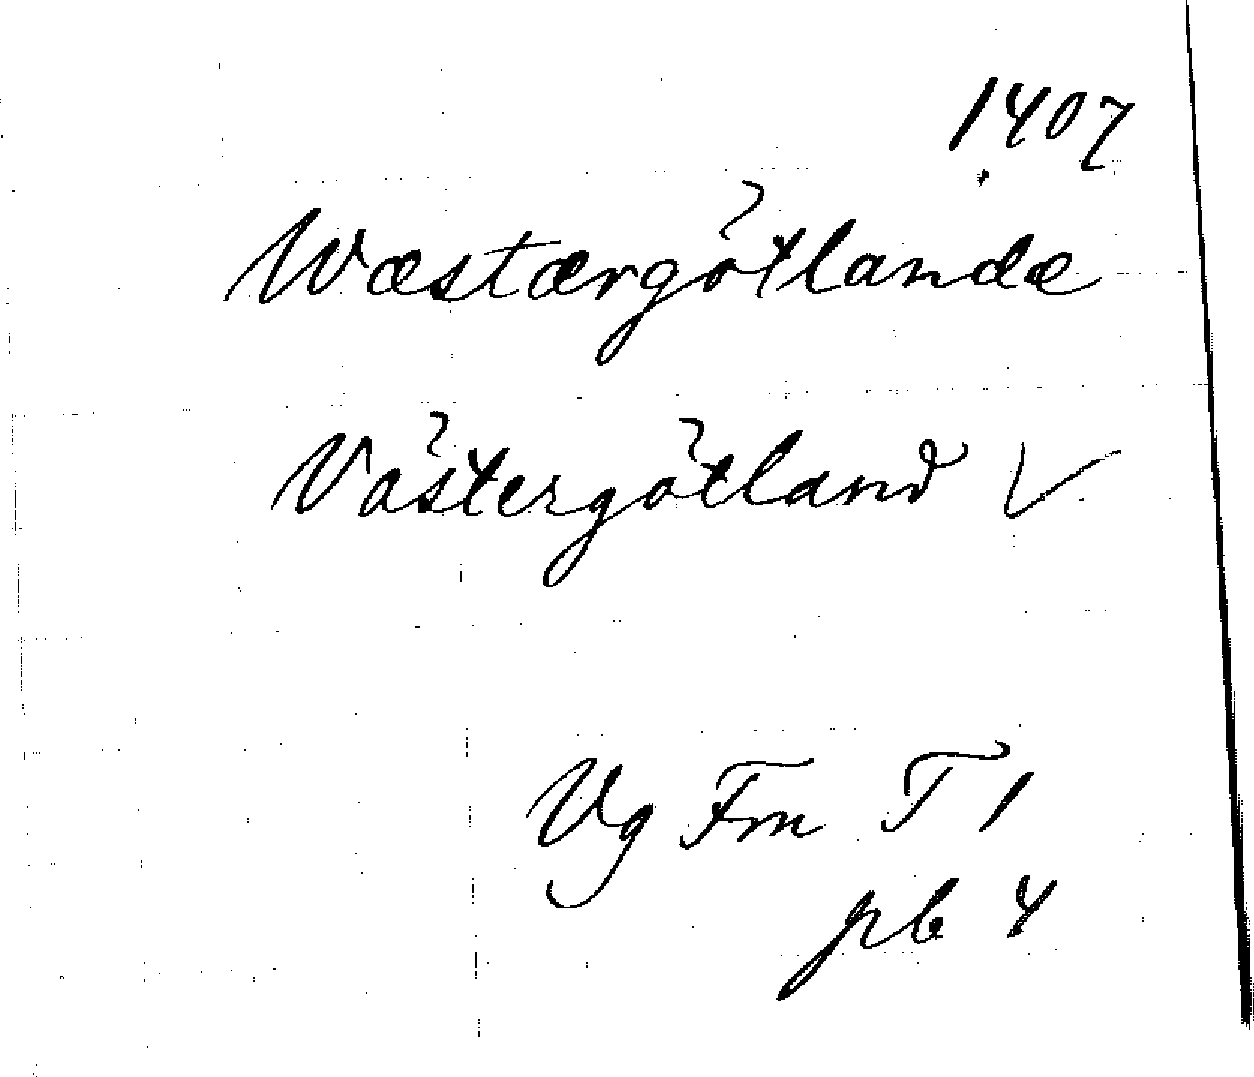 1407
Wæstærgötlandæ
Västergötland V
Vg Fm T 1
pb 4